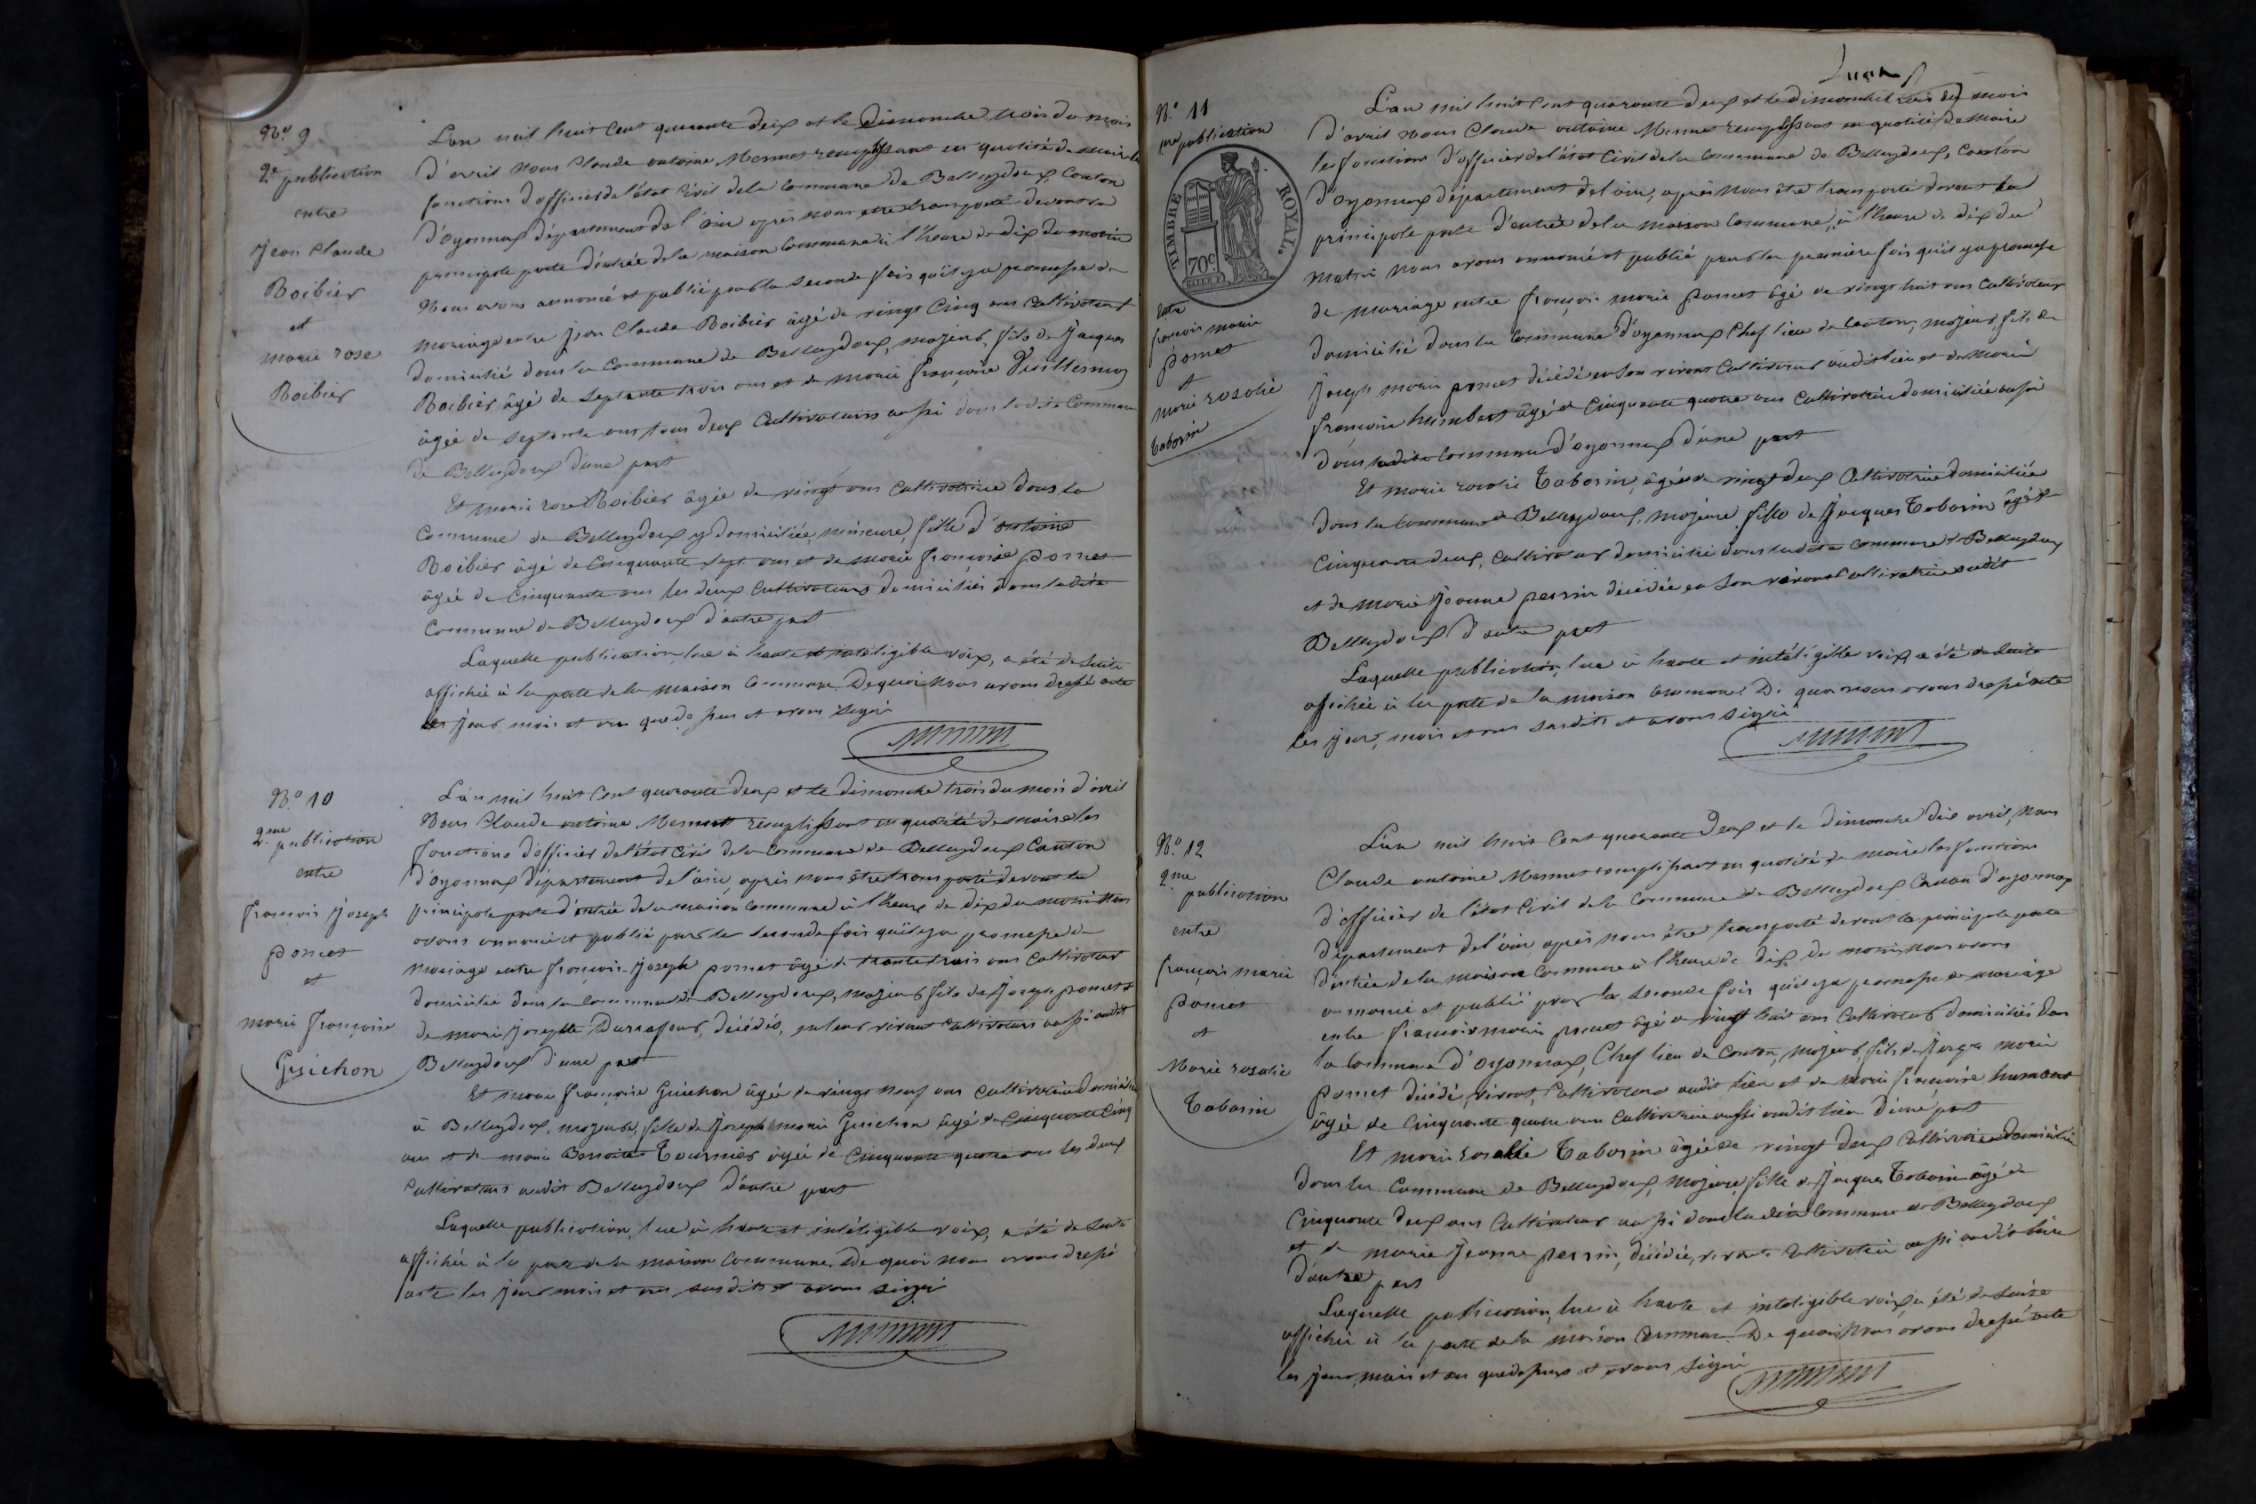 N.o 9
2e publication
entre
Jean Claude
Boibier
et
marie rose
Boibier
L'an mil huit cent quarante deux et le dimanche trois du mois
d'avril nous Claude antoine Mermet remplissant en qualité de maire les
fonctions d'officier de l'état Civil de la Commune de Belleydoux, Canton
d'oyonnax département de l'ain après nous etre transporté devant la
principale porte d'entrée de la maison Commune à l'heure de dix du matin
Nous avons annoncé et publié pour la seconde fois qu'il y a promesse de
mariage entre Jean Claude Boibier âgé de vingt Cinq ans Cultivateur
domicilié dans la Commune de Belleydoux, majeur, fils de Jacques
Boibier âgé de septante trois ans et de marie françoise Vuillermoz
âgée de septante ans tous deux Cultivateurs aussi dans la dite Commune
de Belleydoux d'une part
Et marie rose Boibier âgée de vingt ans Cultivatrice dans la
Commune de Belleydoux y domiciliée, mineure, fille d'antoine
Boibier âgé de Cinquante sept ans et de marie françoise poncet
âgée de Cinquante ans les deux Cultivateurs domiciliés dans la dite
Commune de Belleydoux d'autre part
Laquelle publication, lue à haute et intéligible voix, a été de suite
affichée à la porte de la maison Commune. De quoi nous avons dressé acte
les jour, mois et an que de sus et avons signé
N.o 10
2.me publication
entre
françois Joseph
poncet
et
marie françoise
Guichon
L'an mil huit Cent quarante deux et le dimanche trois du mois d'avril
Nous Claude antoine Mermet remplissant en qualité de maire les
fonctions d'officier de l'état Civil de la Commune de Belleydoux Canton
d'oyonnax département de l'ain, après nous être transporté devant la
principale porte d'entrée de la maison Commune à l'heure de dix du matin Nous
avons annoncé et publié pour la seconde fois qu'il y a promesse de
mariage entre françois Joseph poncet âgé de trente trois ans Cultivateur
domicilié dans la Commune de Belleydoux, majeur fils de Joseph poncet et
de marie Josephte Durafour, décédés, en leur vivant Cultivateurs aussi audit
Belleydoux d'une part
Et marie françoise Guichon âgée de vingt neuf ans Cultivatrice domiciliée
à Belleydoux, majeure, fille de Joseph marie Guichon âgé de Cinquante Cinq
ans et de marie Benoite Tournier âgée de Cinquante quatre ans les deux
Cultivateurs audit Belleydoux d'autre part
Laquelle publication, lue à haute et intéligible voix, a été de suite
affichée à la porte de la maison Commune. De quoi nous avons dressé
acte les jour mois et an susdits et avons signé
N.o 11
1re publication
TIMBRE ROYAL.
70c
entre
françois marie
poncet
et
marie rosalie
Tabourin
L'an mil huit Cent quarante deux et le dimanche trois du mois
d'avril Nous Claude antoine Mermet remplissant en qualité de maire
les fonctions d'officier de l'état Civil de la Commune de Belleydoux, Canton
d'oyonnax département de l'ain, après nous être transporté devant la
principale porte d'entrée de la maison Commune, à l'heure de dix du
matin nous avons annoncé et publié pour la première fois qu'il y a promesse
de mariage entre françois marie poncet âgé de vingt huit ans Cultivateur
domicilié dans la Commune d'oyonnax Chef lieu de Canton, majeur, fils de
Joseph marie poncet décédé en son vivant Cultivateur audit lieu et de marie
françoise humbert âgée de Cinquante quatre ans Cultivatrice domiciliée aussi
dans ladite Commune d'oyonnax d'une part
Et marie rosalie Tabourin, âgée de vingt deux Cultivatrice domiciliée
dans la Commune de Belleydoux, majeure, fille de Jacques Tabourin âgé de
Cinquante deux, Cultivateur domicilié dans ladite Commune de Belleydoux
et de marie Jeanne perrin décédée en son vivant Cultivatrice audit
Belleydoux d'autre part
Laquelle publication, lue à haute et intéligible voix a été de suite
affichée à la porte de la maison Commune. De quoi nous avons dressé acte
les jour, mois et an susdits et avons signé
N.o 12
2.me
publication
entre
françois marie
poncet
et
Marie rosalie
Tabourin
L'an mil huit Cent quarante deux et le dimanche dix avril, Nous
Claude antoine Mermet remplissant en qualité de maire les fonctions
d'officier de l'état Civil de la Commune de Belleydoux Canton d'oyonnax
département de l'ain, après nous être transporté devant la principale porte
d'entrée de la maison Commune à l'heure de dix du matin, nous avons
annoncé et publié pour la seconde fois qu'il y a promesse de mariage
entre françois marie poncet âgé de vingt huit ans Cultivateur domicilié dans
la Commune d'oyonnax, Chef lieu de Canton, majeur, fils de Joseph marie
poncet décédé, vivant, Cultivateur audit lieu et de marie françoise humbert
âgée de Cinquante quatre ans Cultivatrice aussi audit lieu d'une part
Et marie rosalie Tabourin âgée de vingt deux Cultivatrice domiciliée
dans la Commune de Belleydoux, majeure, fille de Jacques Tabourin âgé de
Cinquante deux ans Cultivateur aussi dans ladite Commune de Belleydoux
et de marie Jeanne perrin, décédée, vivante Cultivatrice aussi audit lieu
d'autre part
Laquelle publication, lue à haute et intéligible voix, a été de suite
affichée à la porte de la maison Commune. De quoi Nous avons dressé acte
les jour, mois et an que de sus et avons signé